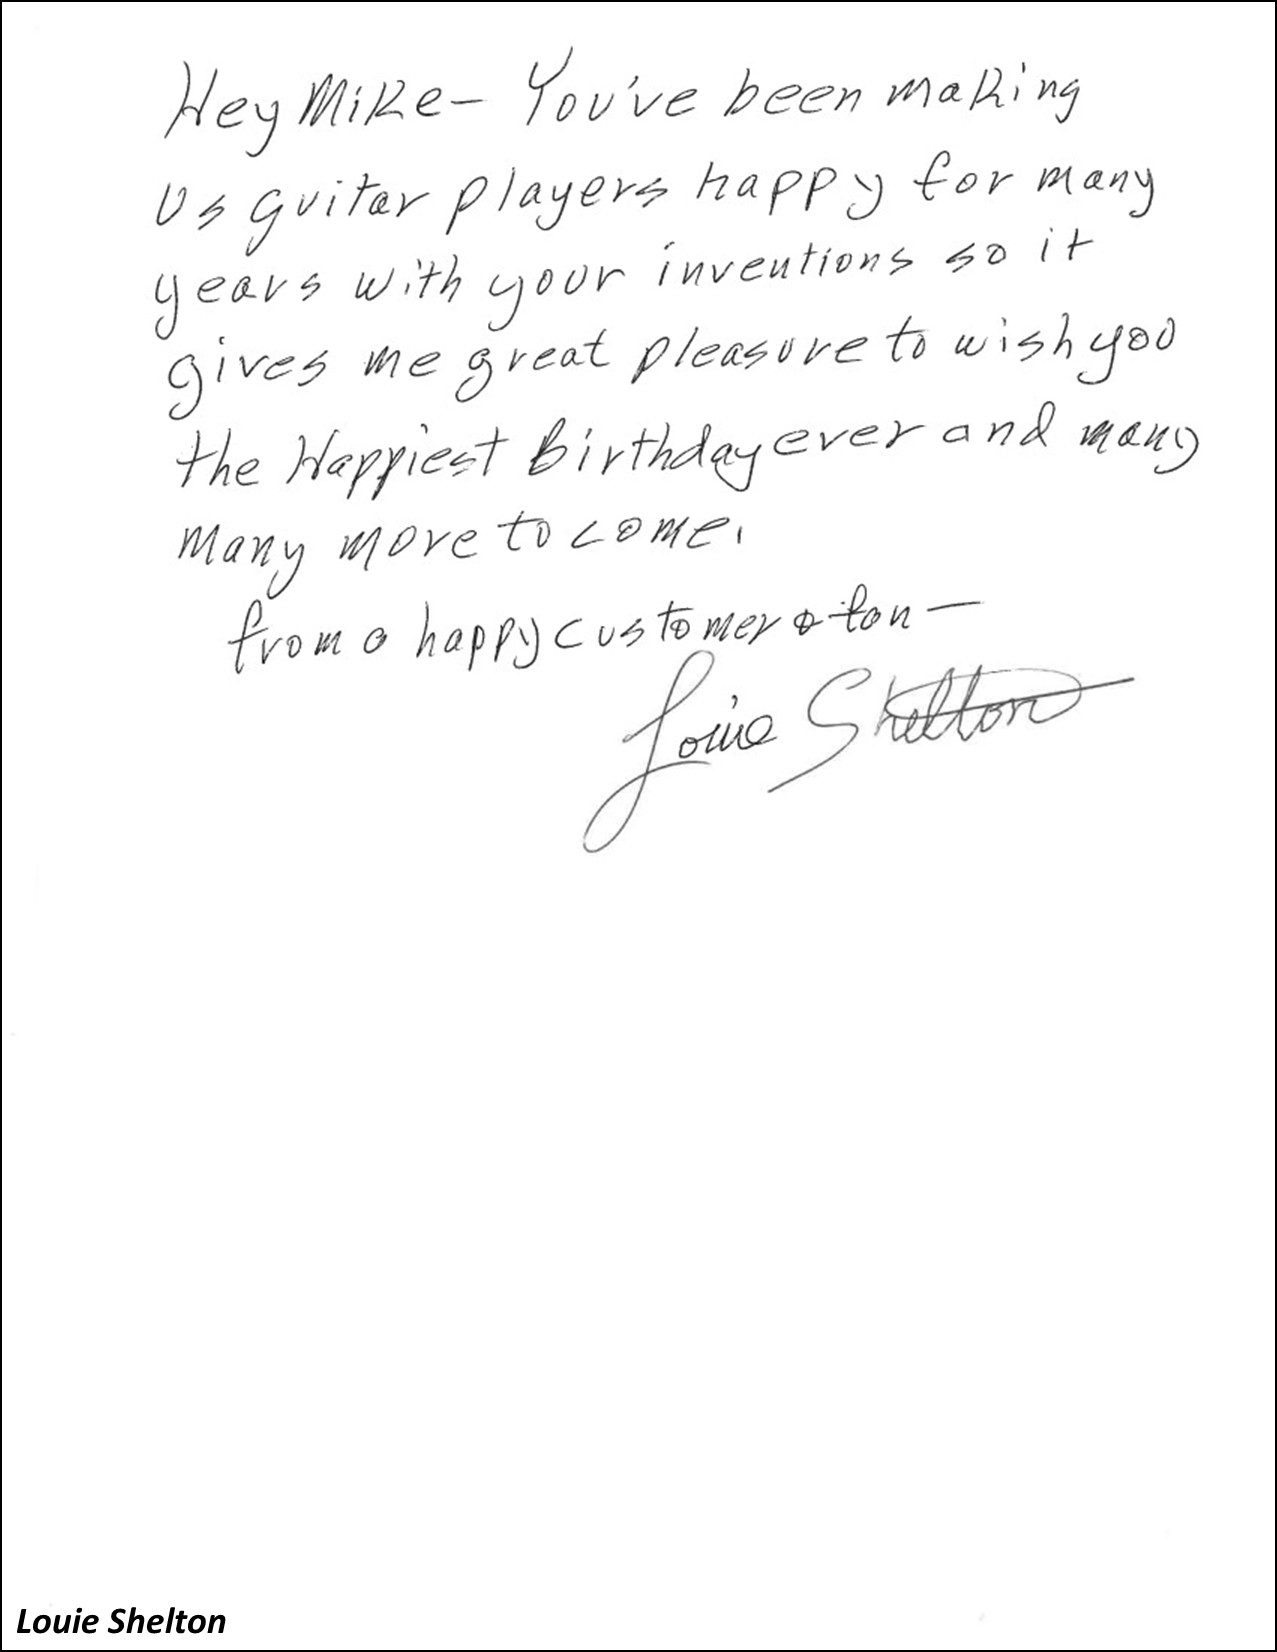 Hey Mike – You've been making
us guitar players happy for many
years with your inventions so it
gives me great pleasure to wish you
the Happiest Birthday ever and many
many more to come.
from a happy customer & fan –
Louie Shelton
Louie Shelton